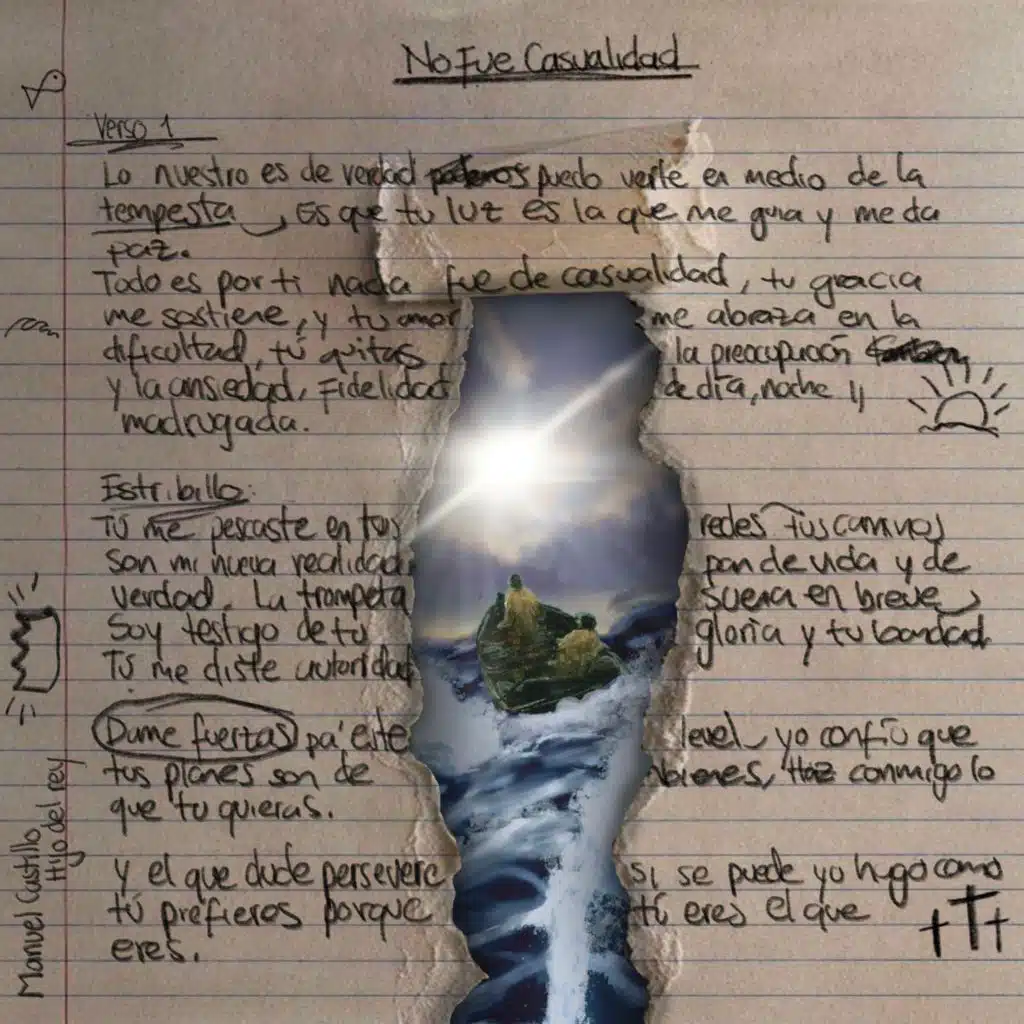 No Fue Casualidad
Verso 1
Lo nuestro es de verdad puedo verte en medio de la
tempesta, Es que tu luz es la que me guia y me da
paz.
Todo es por ti nada fue de casualidad, tu gracia
me sostiene, y tu amor me abraza en la
dificultad, tú quitas la preocupación
y la ansiedad, Fidelidad de día, noche y
madrugada.
Estribillo:
Tú me pescaste en tus redes tus caminos
son mi nueva realidad pan de vida y de
verdad, La trompeta suena en breve
Soy testigo de tu gloria y tu bondad
Tú me diste autoridad
Dame fuerzas pa' este level yo confío que
tus planes son de bienes, Haz conmigo lo
que tu quieras.
y el que dude persevere si se puede yo hago como
tú prefieres porque tú eres el que
eres.
Manuel Castillo
Hijo del rey